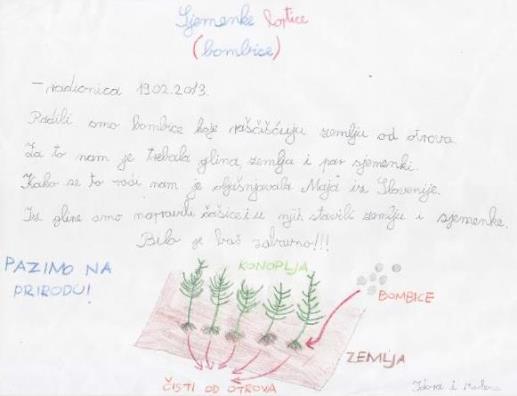 Sjemenke loptice
(bombice)
- radionica 19.02.2013.
Radili smo bombice koje raščišćuju zemlju od otrova.
Za to nam je trebala glina, zemlja i par sjemenki.
Kako se to radi nam je objašnjavala Maja iz Slovenije.
Iz gline smo napravili čašice i u njih stavili zemlju i sjemenke.
Bilo je baš zabavno!!!
PAZIMO NA
PRIRODU!
KONOPLJA
BOMBICE
ZEMLJA
ČISTI OD OTROVA
i